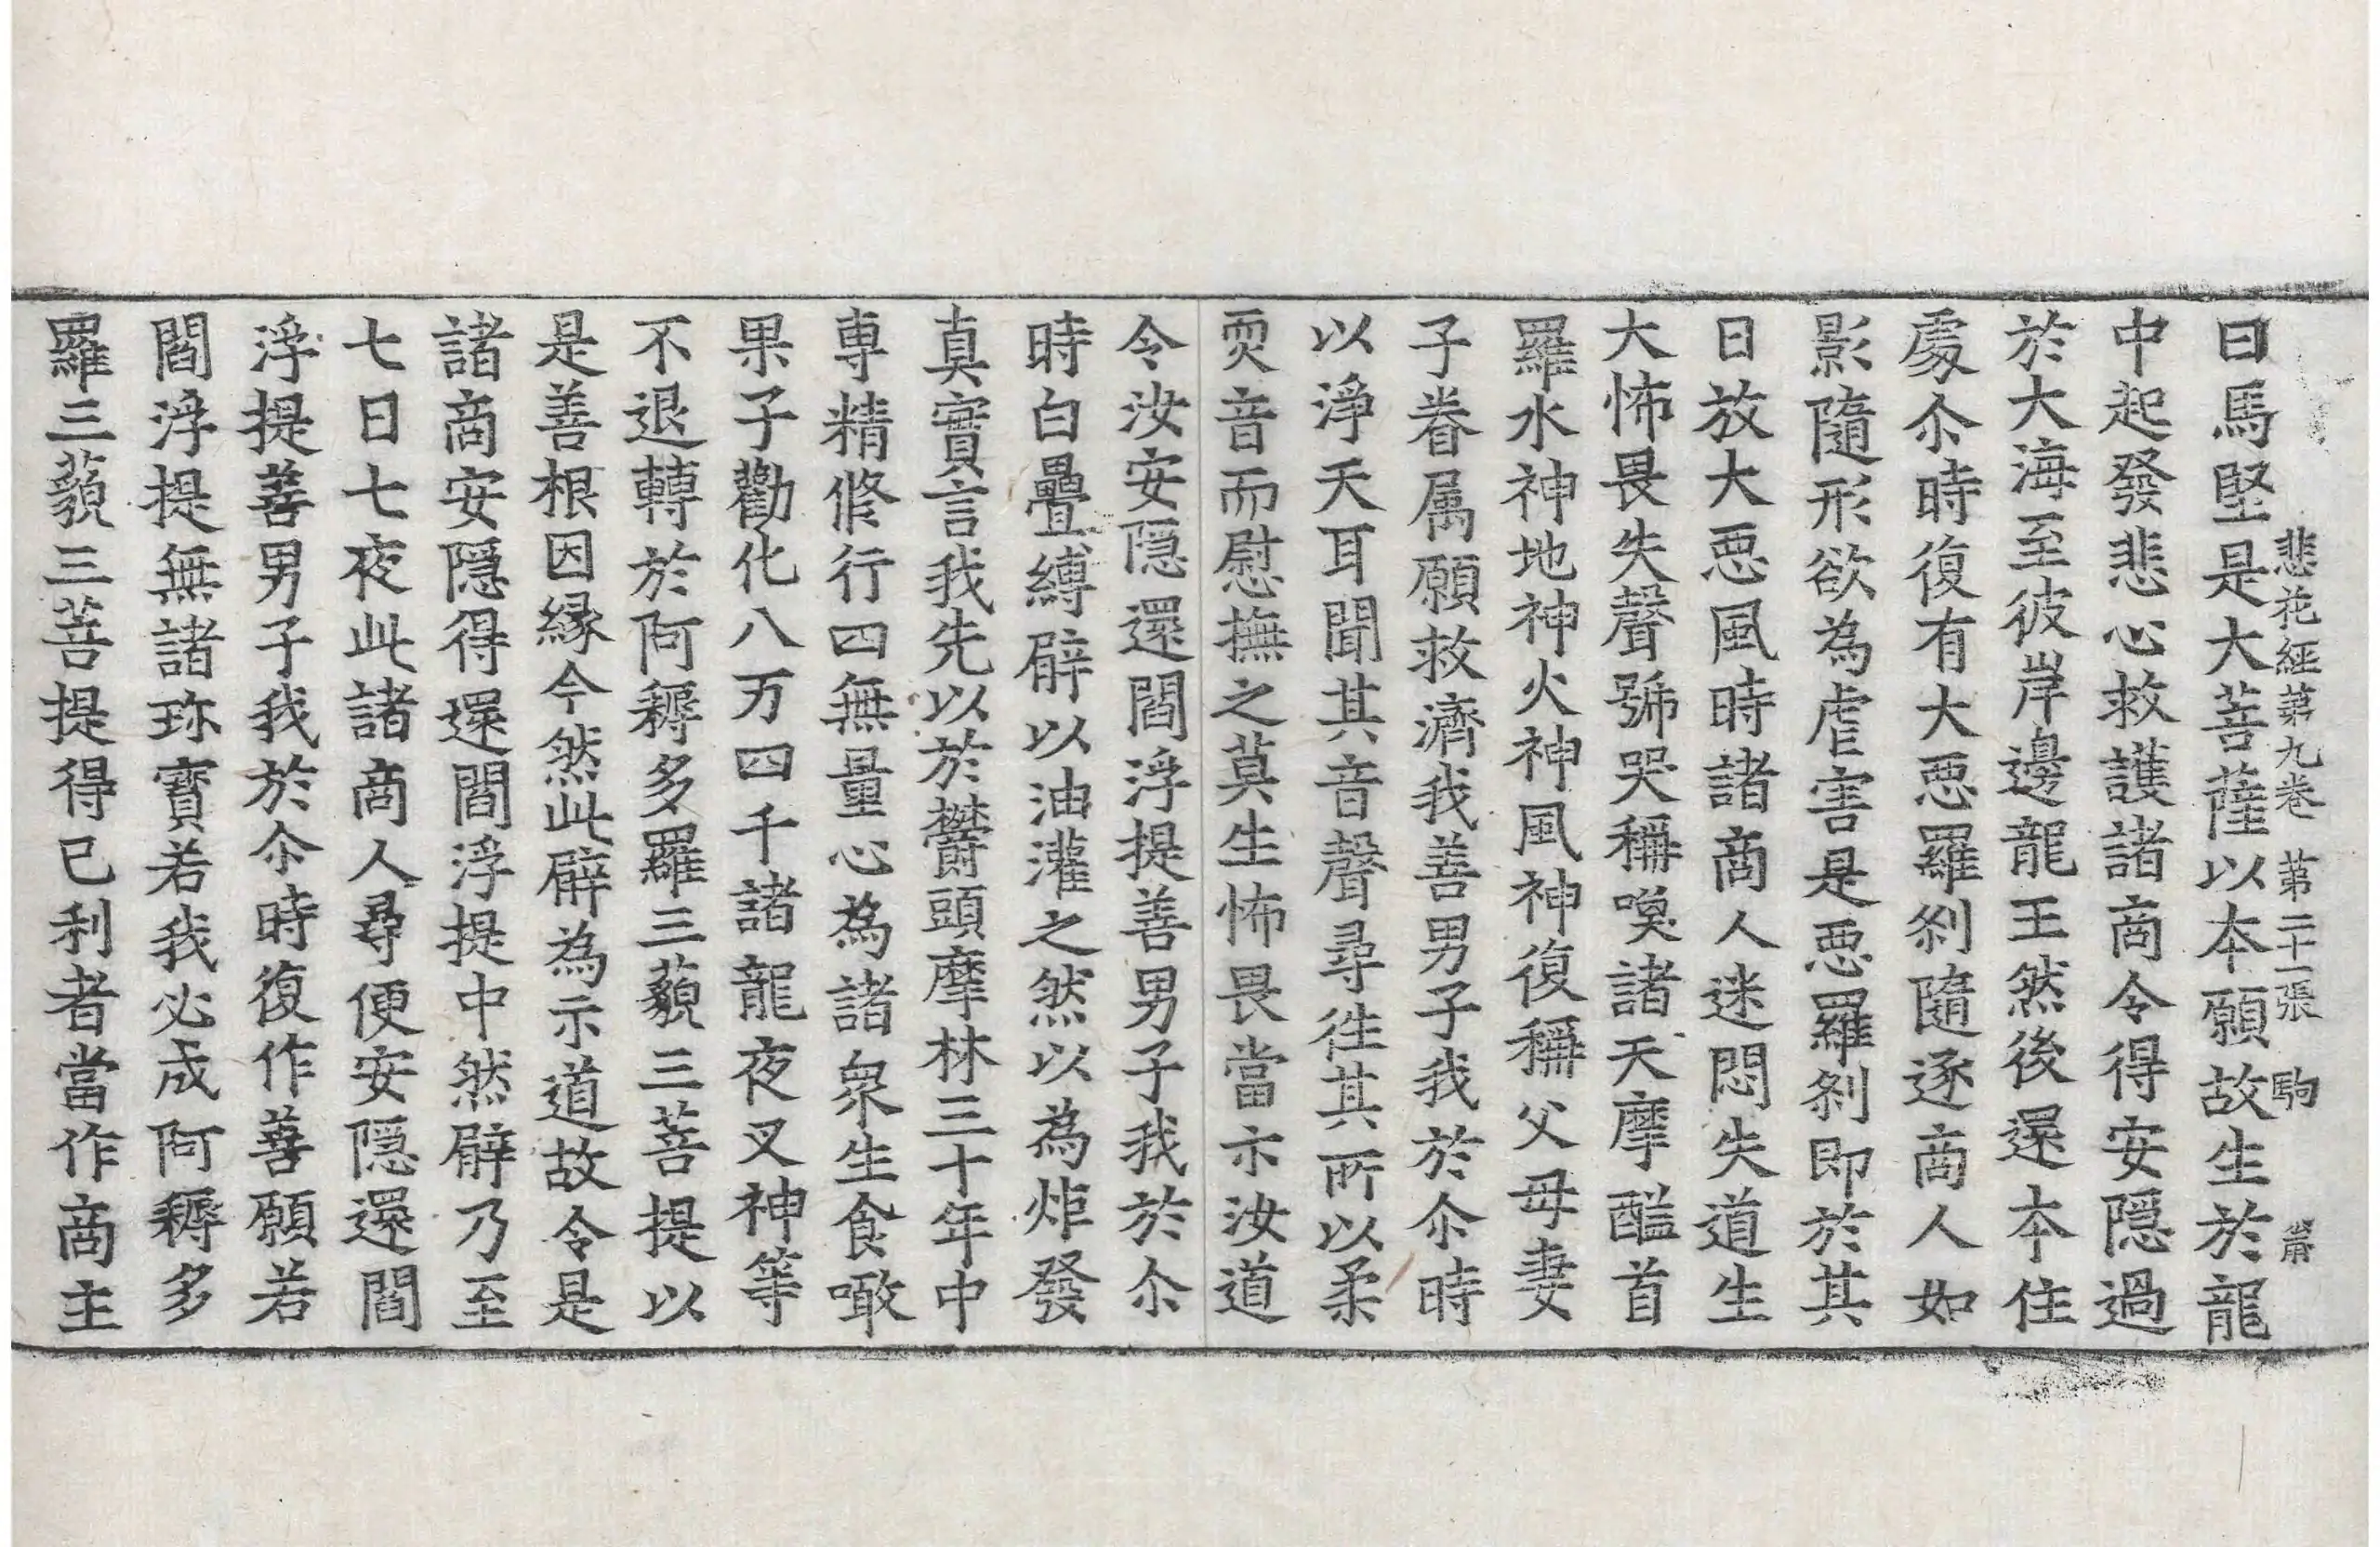 悲花經第九卷 第二十一張 駒
曰馬堅是大菩薩以本願故生於龍
中起發悲心救護諸商令得安隱過
於大海至彼岸邊龍王然後還本住
處尒時復有大惡羅剎隨逐商人如
影隨形欲為虐害是惡羅剎即於其
日放大惡風時諸商人迷悶失道生
大怖畏失聲號哭稱喚諸天摩醯首
羅水神地神火神風神復稱父母妻
子眷属願救濟我善男子我於尒時
以淨天耳聞其音聲尋往其所以柔
耎音而慰撫之莫生怖畏當示汝道
令汝安隱還閻浮提善男子我於尒
時白疊縛臂以油灌之然以為炬發
真實言我先以於欝頭摩林三十年中
専精修行四無量心為諸衆生食噉
果子勸化八万四千諸龍夜叉神等
不退轉於阿耨多羅三藐三菩提以
是善根因縁今然此臂為示道故令是
諸商安隱得還閻浮提中然臂乃至
七日七夜此諸商人尋便安隱還閻
浮提善男子我於尒時復作善願若
閻浮提無諸珎寶若我必成阿耨多
羅三藐三菩提得已利者當作商主